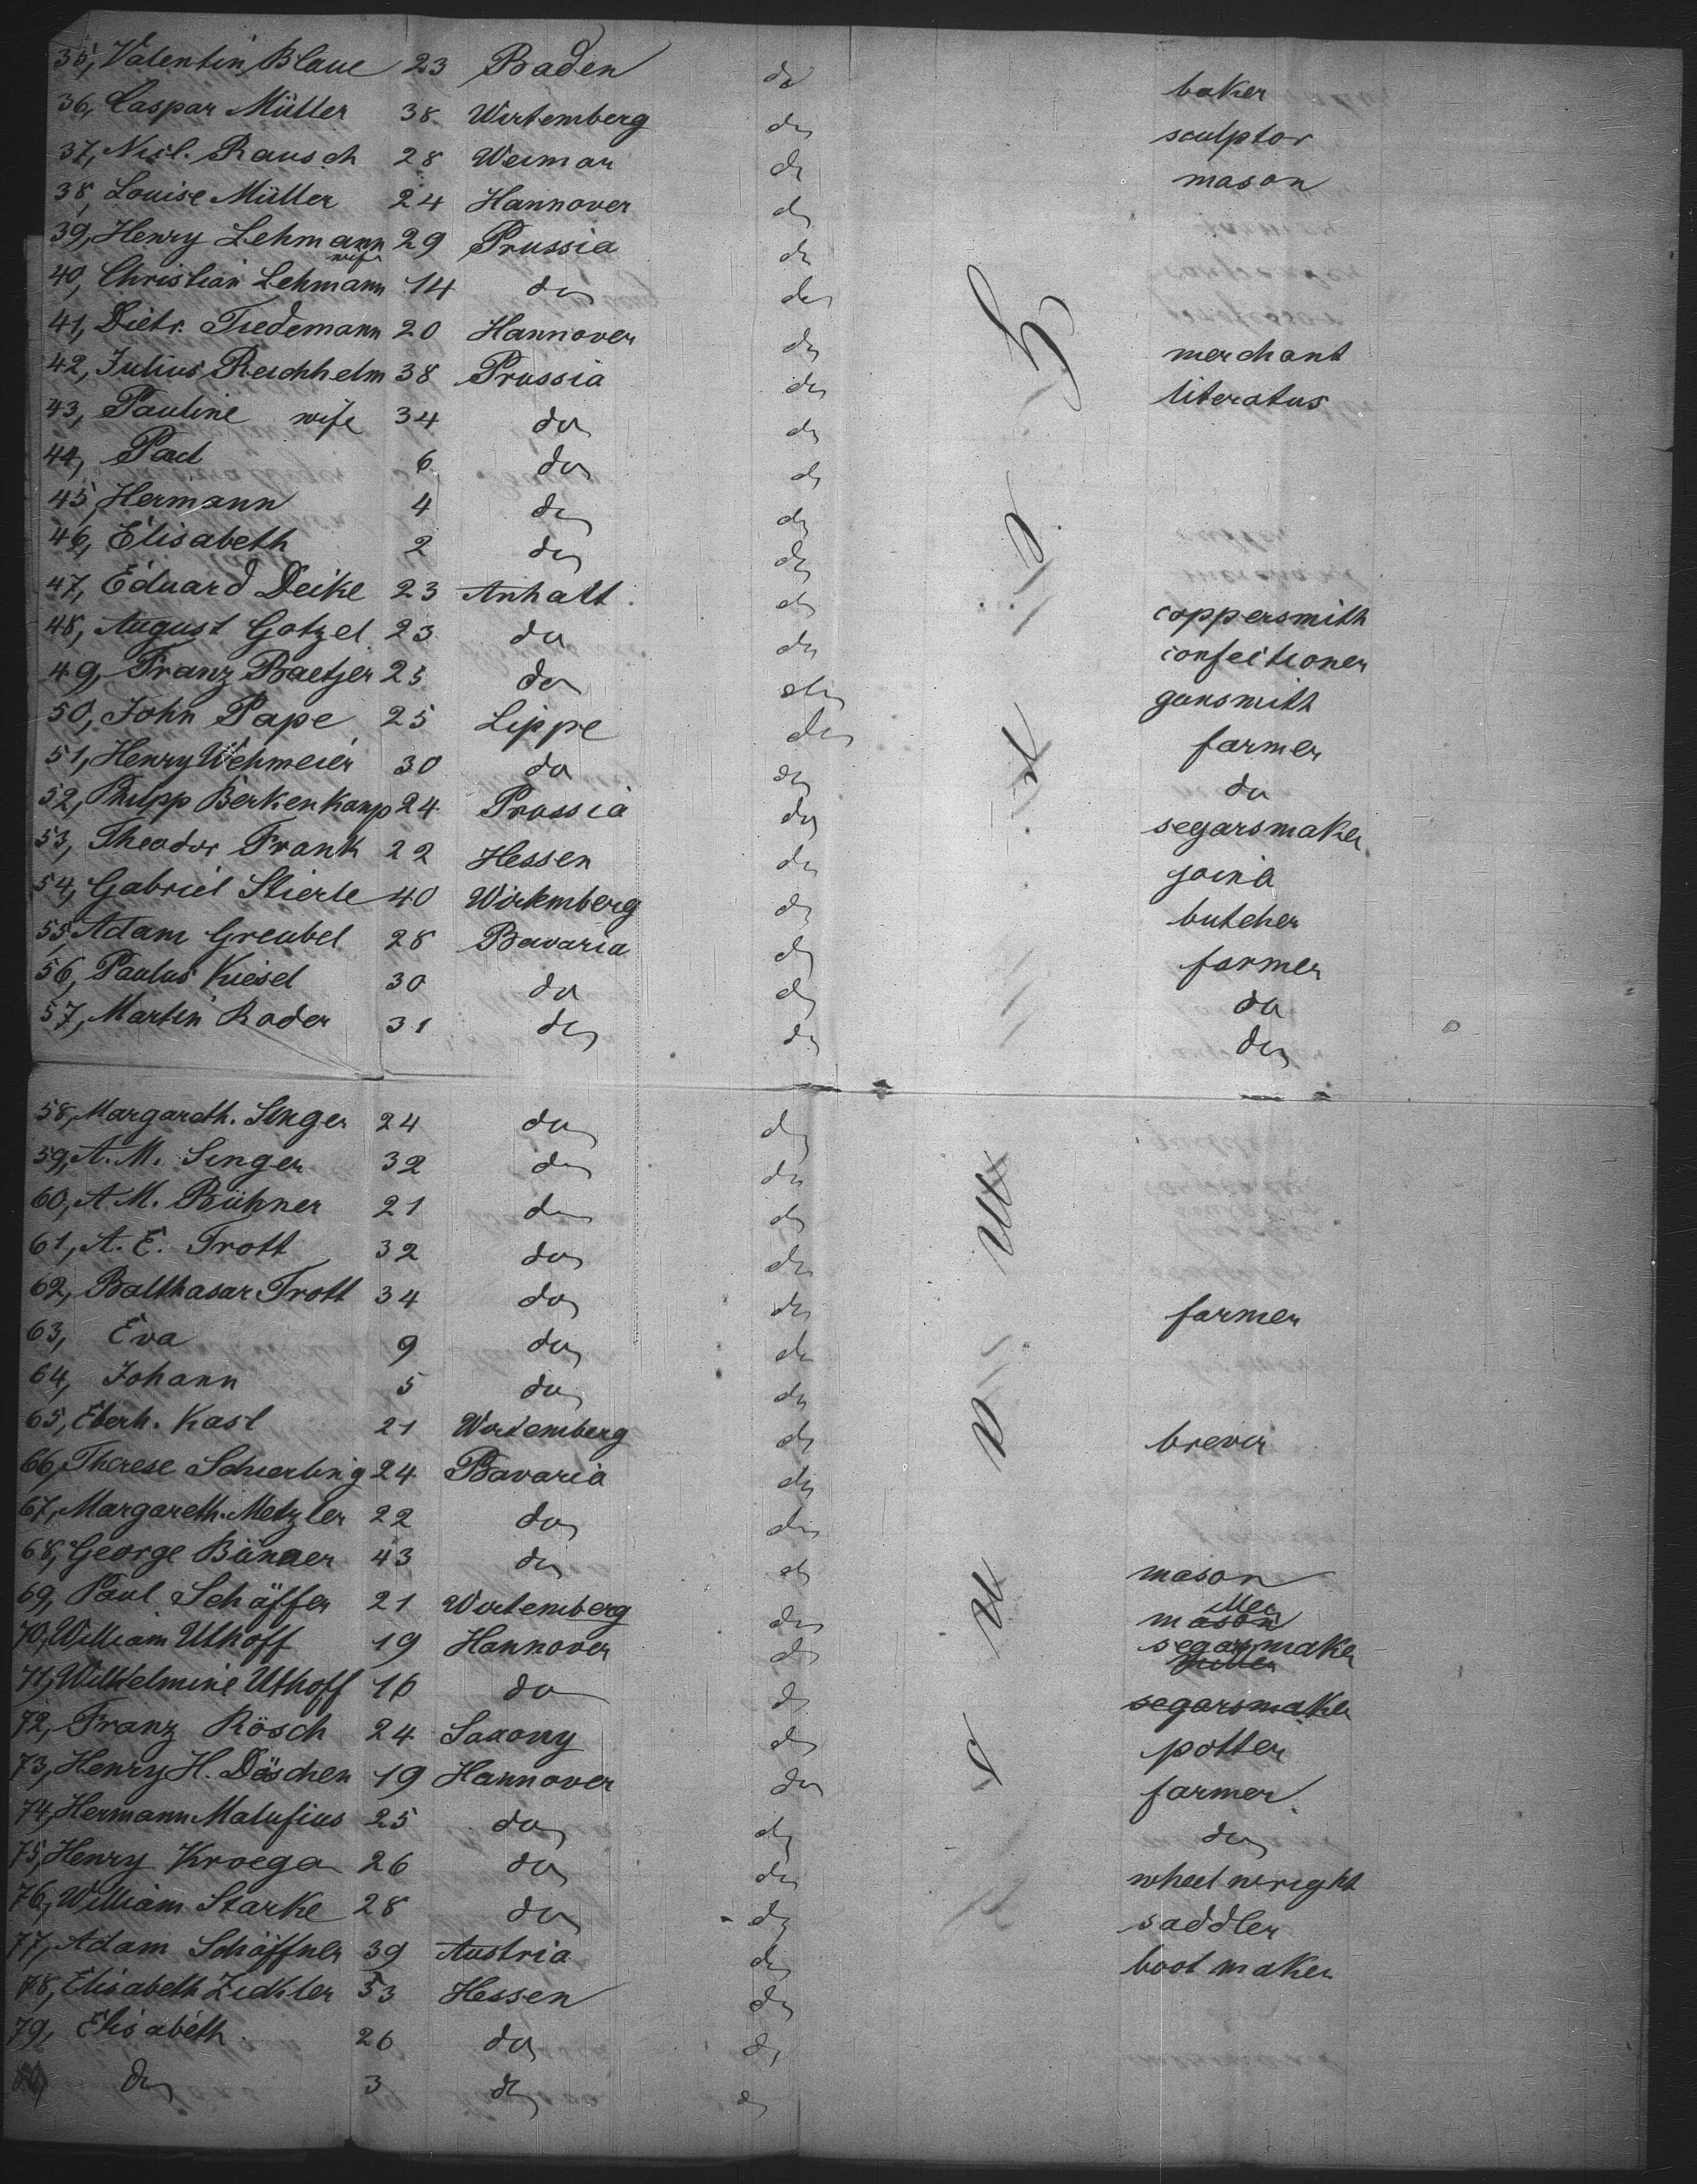 35, Valentin Blaue 23 Baden do baker
36, Caspar Müller 38 Wirtemberg do sculptor
37, Nicl. Rausch 28 Weimar do mason
38, Louise Müller 24 Hannover do
39, Henry Lehmann 29 Prussia do
wife
40, Christian Lehmann 14 do do
41, Dietr. Tiedemann 20 Hannover do merchant
42, Julius Reichhelm 38 Prussia do literatus
43, Pauline wife 34 do do
44, Paul 6 do do
45, Hermann 4 do do
46, Elisabeth 2 do do
47, Eduard Deike 23 Anhalt do coppersmith
48, August Gotzel 23 do do confectioner
49, Franz Baetjer 25 do do gunsmith
50, John Pape 25 Lippe do farmer
51, Henry Wehmeier 30 do do do
52, Philipp Berkenkamp 24 Prussia do segarsmaker
53, Theodor Frank 22 Hessen do
54, Gabriel Stierle 40 Wirtemberg do butcher
55, Adam Greubel 28 Bavaria do farmer
56, Paulus Kiesel 30 do do do
57, Martin Rader 31 do do do
58, Margareth. Singer 24 do do
59, A. M. Singer 32 do do
60, A M. Bühner 21 do do
61, A. E. Trott 32 do do
62, Balthasar Trott 34 do do farmer
63, Eva 9 do do
64, Johann 5 do do
65, Eberh. Kast 21 Wirtemberg do brever
66, Therese Schierling 24 Bavaria do
67, Margareth. Metzler 22 do do
68, George Büner 43 do do mason
69, Paul Schäffer 21 Wirtemberg do mason
70, William Uthoff 19 Hannover do segarsmaker
71, Wilhelmine Uthoff 16 do do segarsmaker
72, Franz Rösch 24 Saxony do potter
73, Henry H. Döschen 19 Hannover do farmer
74, Hermann Malufius 25 do do do
75, Henry Kroeger 26 do do wheelwright
76, William Starke 28 do do saddler
77, Adam Schäffner 39 Austria do bootmaker
78, Elisabeth Zeidler 53 Hessen do
79, Elisabeth. 26 do do
80, do 3 do do